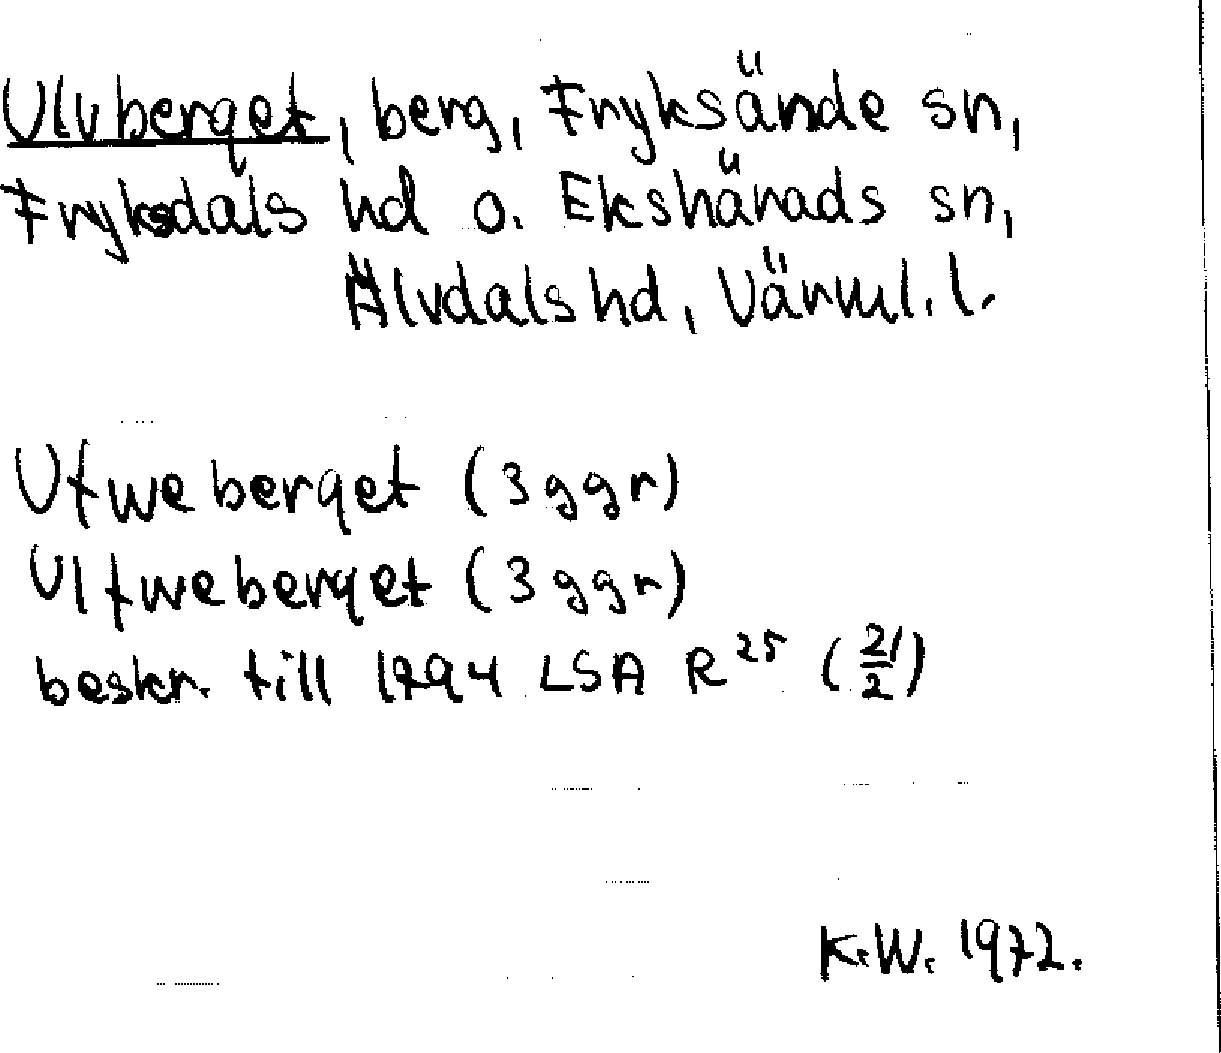 Ulvberget, berg, Fryksände sn,
Fryksdals hd o. Ekshärads sn,
Älvdals hd, Värml. l.
Ufweberget (3 ggr)
Ulfweberget (3 ggr)
beskr. till LSA R 25 (21/2)
K.W. 1972.